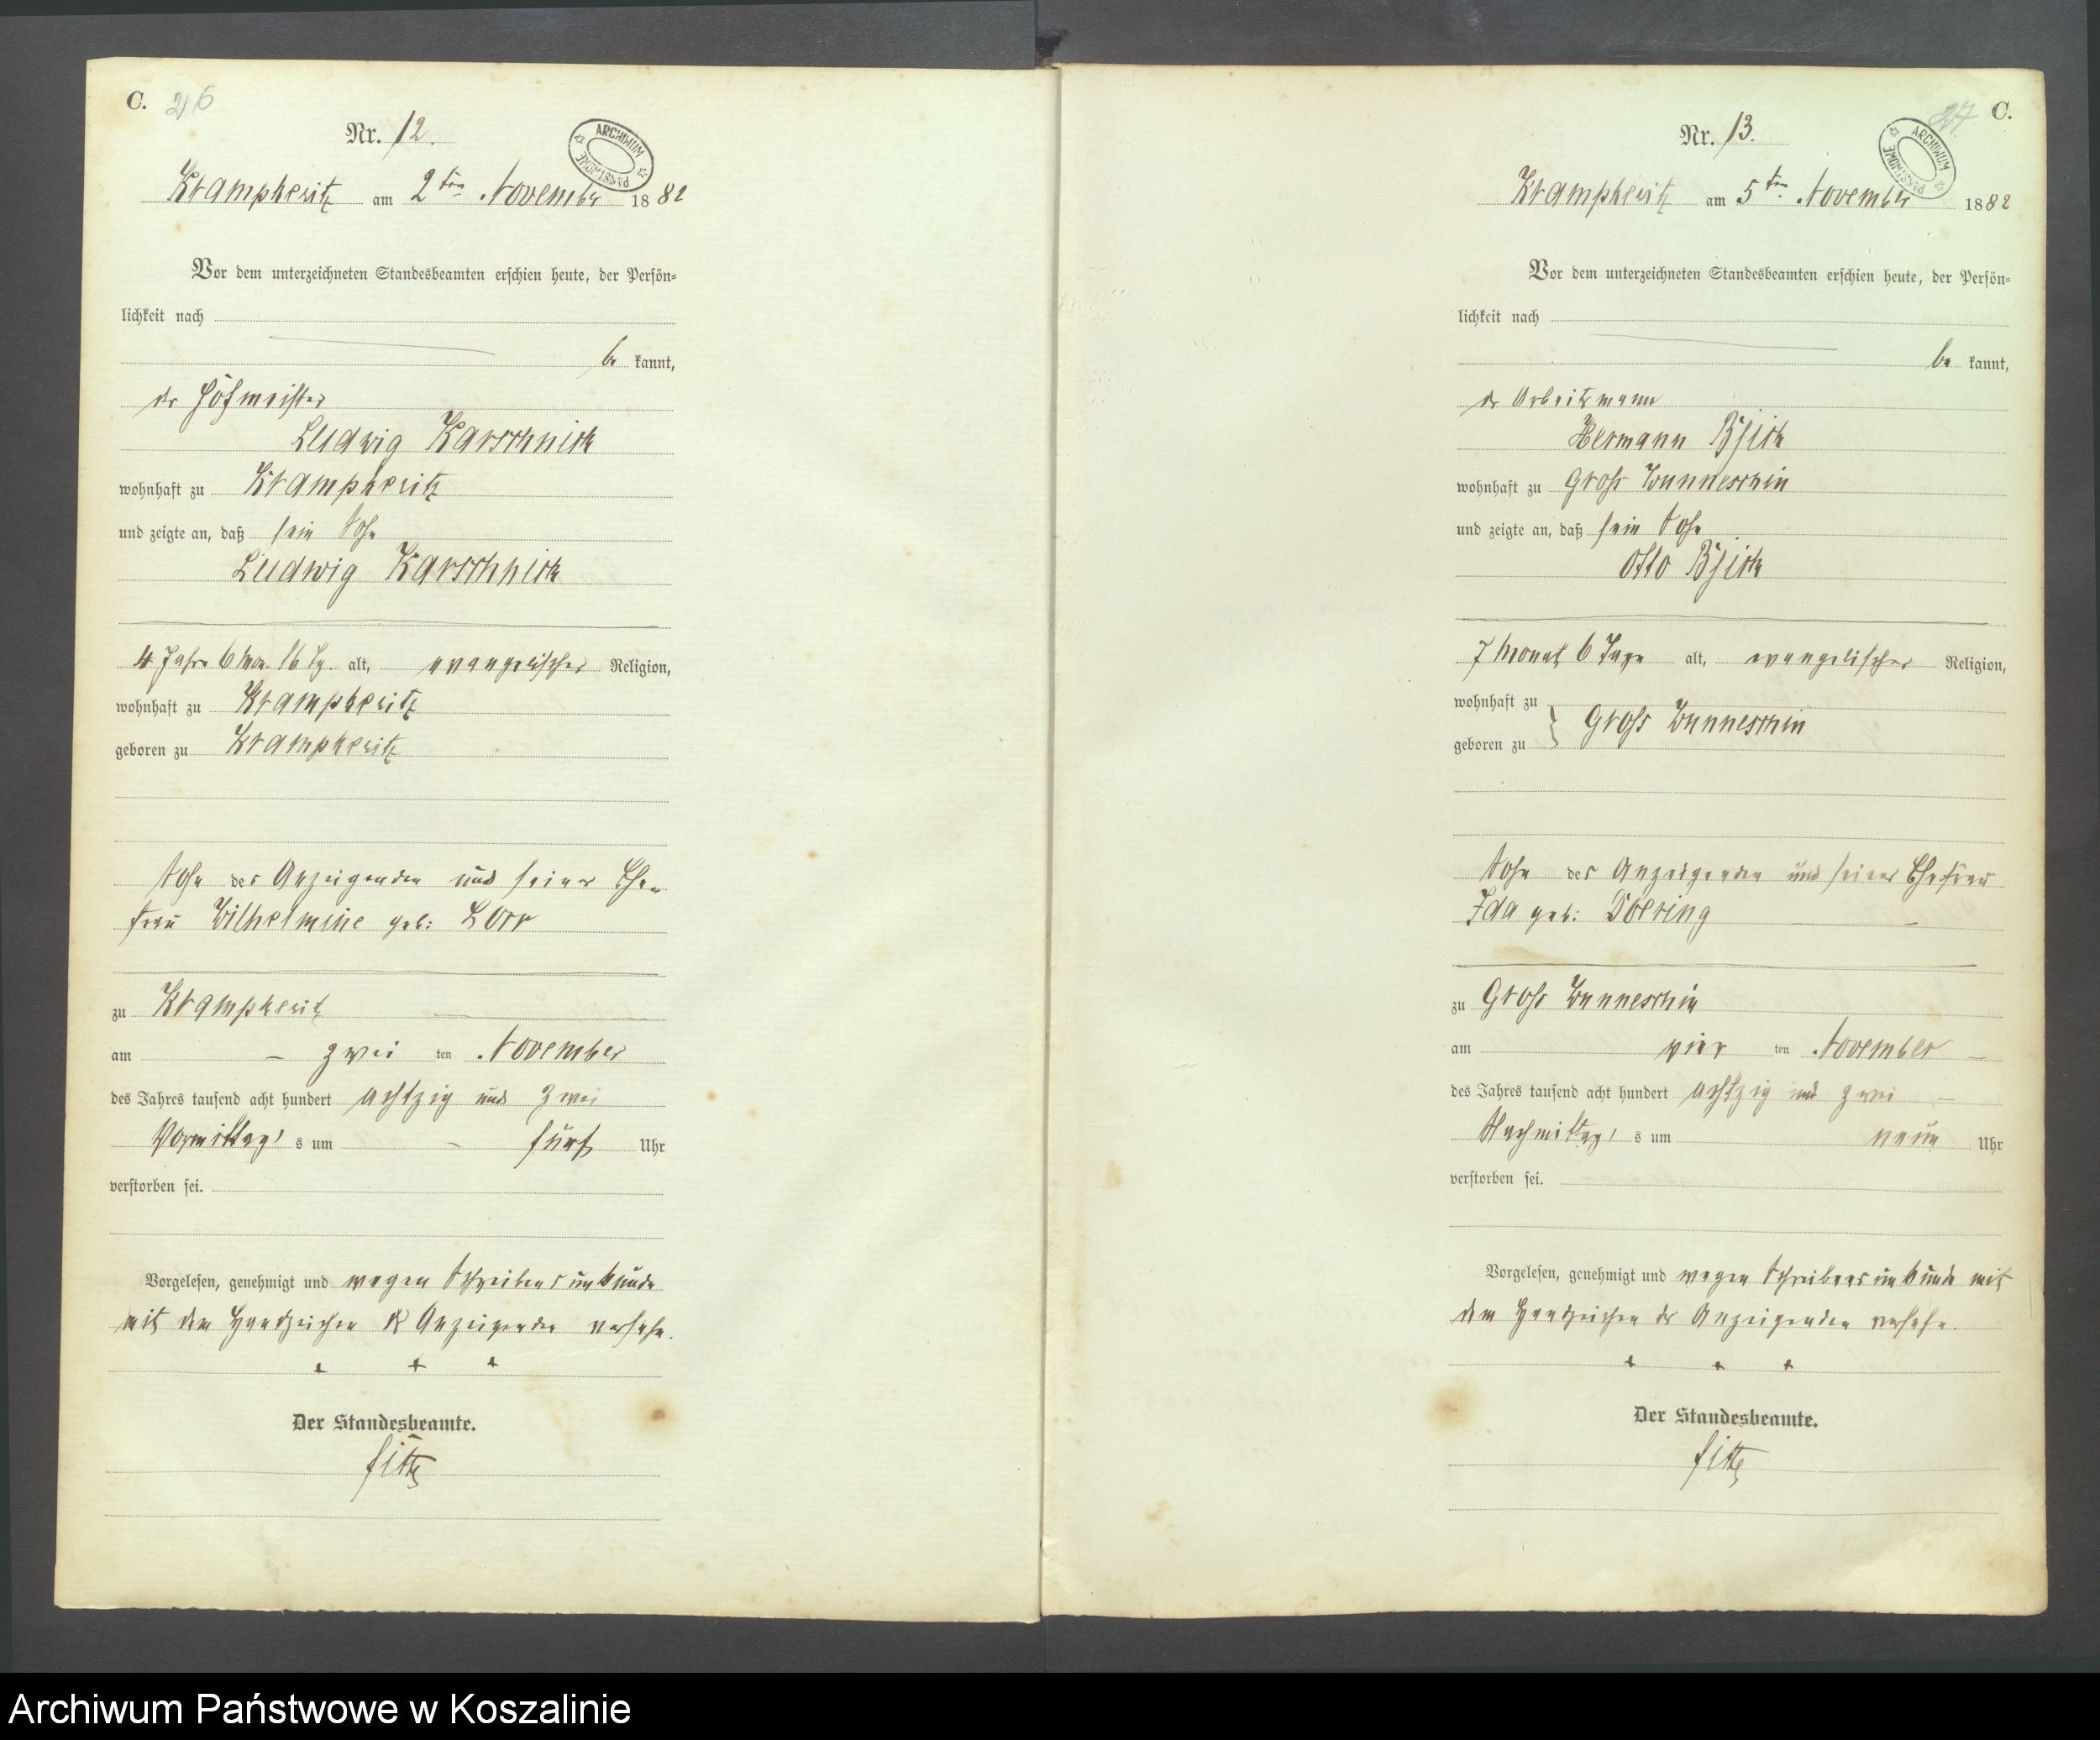 C. 26
Nr. 12.
ARCHIWUM PAŃSTWOWE
Krampkewitz am 2ten November 1882
Vor dem unterzeichneten Standesbeamten erschien heute, der Persön-
lichkeit nach
be kannt,
der Hofmeister
Ludwig Karschnick
wohnhaft zu Krampkewitz
und zeigte an, daß sein Sohn
Ludwig Karschnick
4 Jahre 6 Mon. 16 Tg. alt, evangelischer Religion,
wohnhaft zu Krampkewitz
geboren zu Krampkewitz
Sohn des Anzeigenden und seiner Ehe-
frau Wilhelmine geb:
zu Krampkewitz
am zwei ten November
des Jahres tausend acht hundert achtzig und zwei
Vormittag s um fünf Uhr
verstorben sei.
Vorgelesen, genehmigt und wegen Schreibensunkunde
mit dem Handzeichen des Anzeigenden versehen.
+ + +
Der Standesbeamte.
C. 27
Nr. 13.
ARCHIWUM PAŃSTWOWE
Krampkewitz am 5ten November 1882
Vor dem unterzeichneten Standesbeamten erschien heute, der Persön-
lichkeit nach
be kannt,
der Arbeitsmann
Hermann
wohnhaft zu Gross Wunneschin
und zeigte an, daß sein Sohn
Otto
7 Monat 6 Tage alt, evangelischer Religion,
wohnhaft zu
geboren zu } Gross Wunneschin
Sohn des Anzeigenden und seiner Ehefrau
Ida geb: Doering
zu Gross Wunneschin
am vier ten November
des Jahres tausend acht hundert achtzig und zwei
Nachmittag s um neun Uhr
verstorben sei.
Vorgelesen, genehmigt und wegen Schreibensunkunde mit
dem Handzeichen des Anzeigenden versehen.
+ + +
Der Standesbeamte.
Archiwum Państwowe w Koszalinie